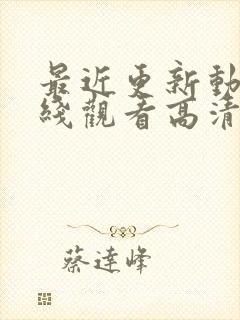 最近更新動
綫觀看高清
蔡達峰